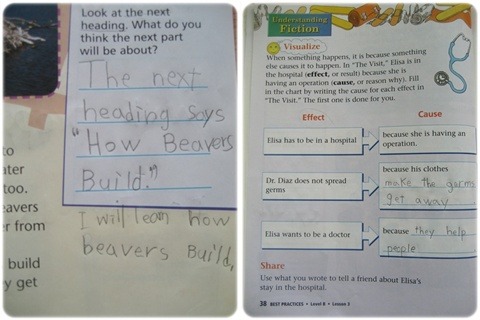 Look at the next
heading. What do you
think the next part
will be about?
The next
heading says
"How Beavers
Build."
I will lean how
beavers Build,
to
ater
too.
eavers
er from
build
y get
Understanding
Fiction
Visualize
When something happens, it is because something
else causes it to happen. In "The Visit," Elisa is in
the hospital (effect, or result) because she is
having an operation (cause, or reason why). Fill
in the chart by writing the cause for each effect in
"The Visit." The first one is done for you.
Effect
Cause
Elisa has to be in a hospital
because she is having an
operation.
Dr. Diaz does not spread
germs
because his clothes
make the germs
get away
Elisa wants to be a doctor
because they help
people
Share
Use what you wrote to tell a friend about Elisa's
stay in the hospital.
38 BEST PRACTICES • Level B • Lesson 3